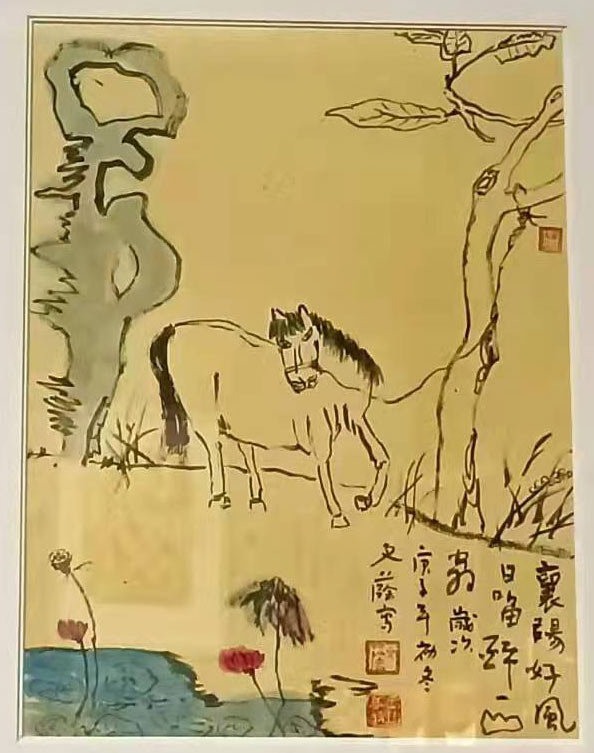 襄陽好風
日留醉与山
翁歲次
庚子年初冬
文写